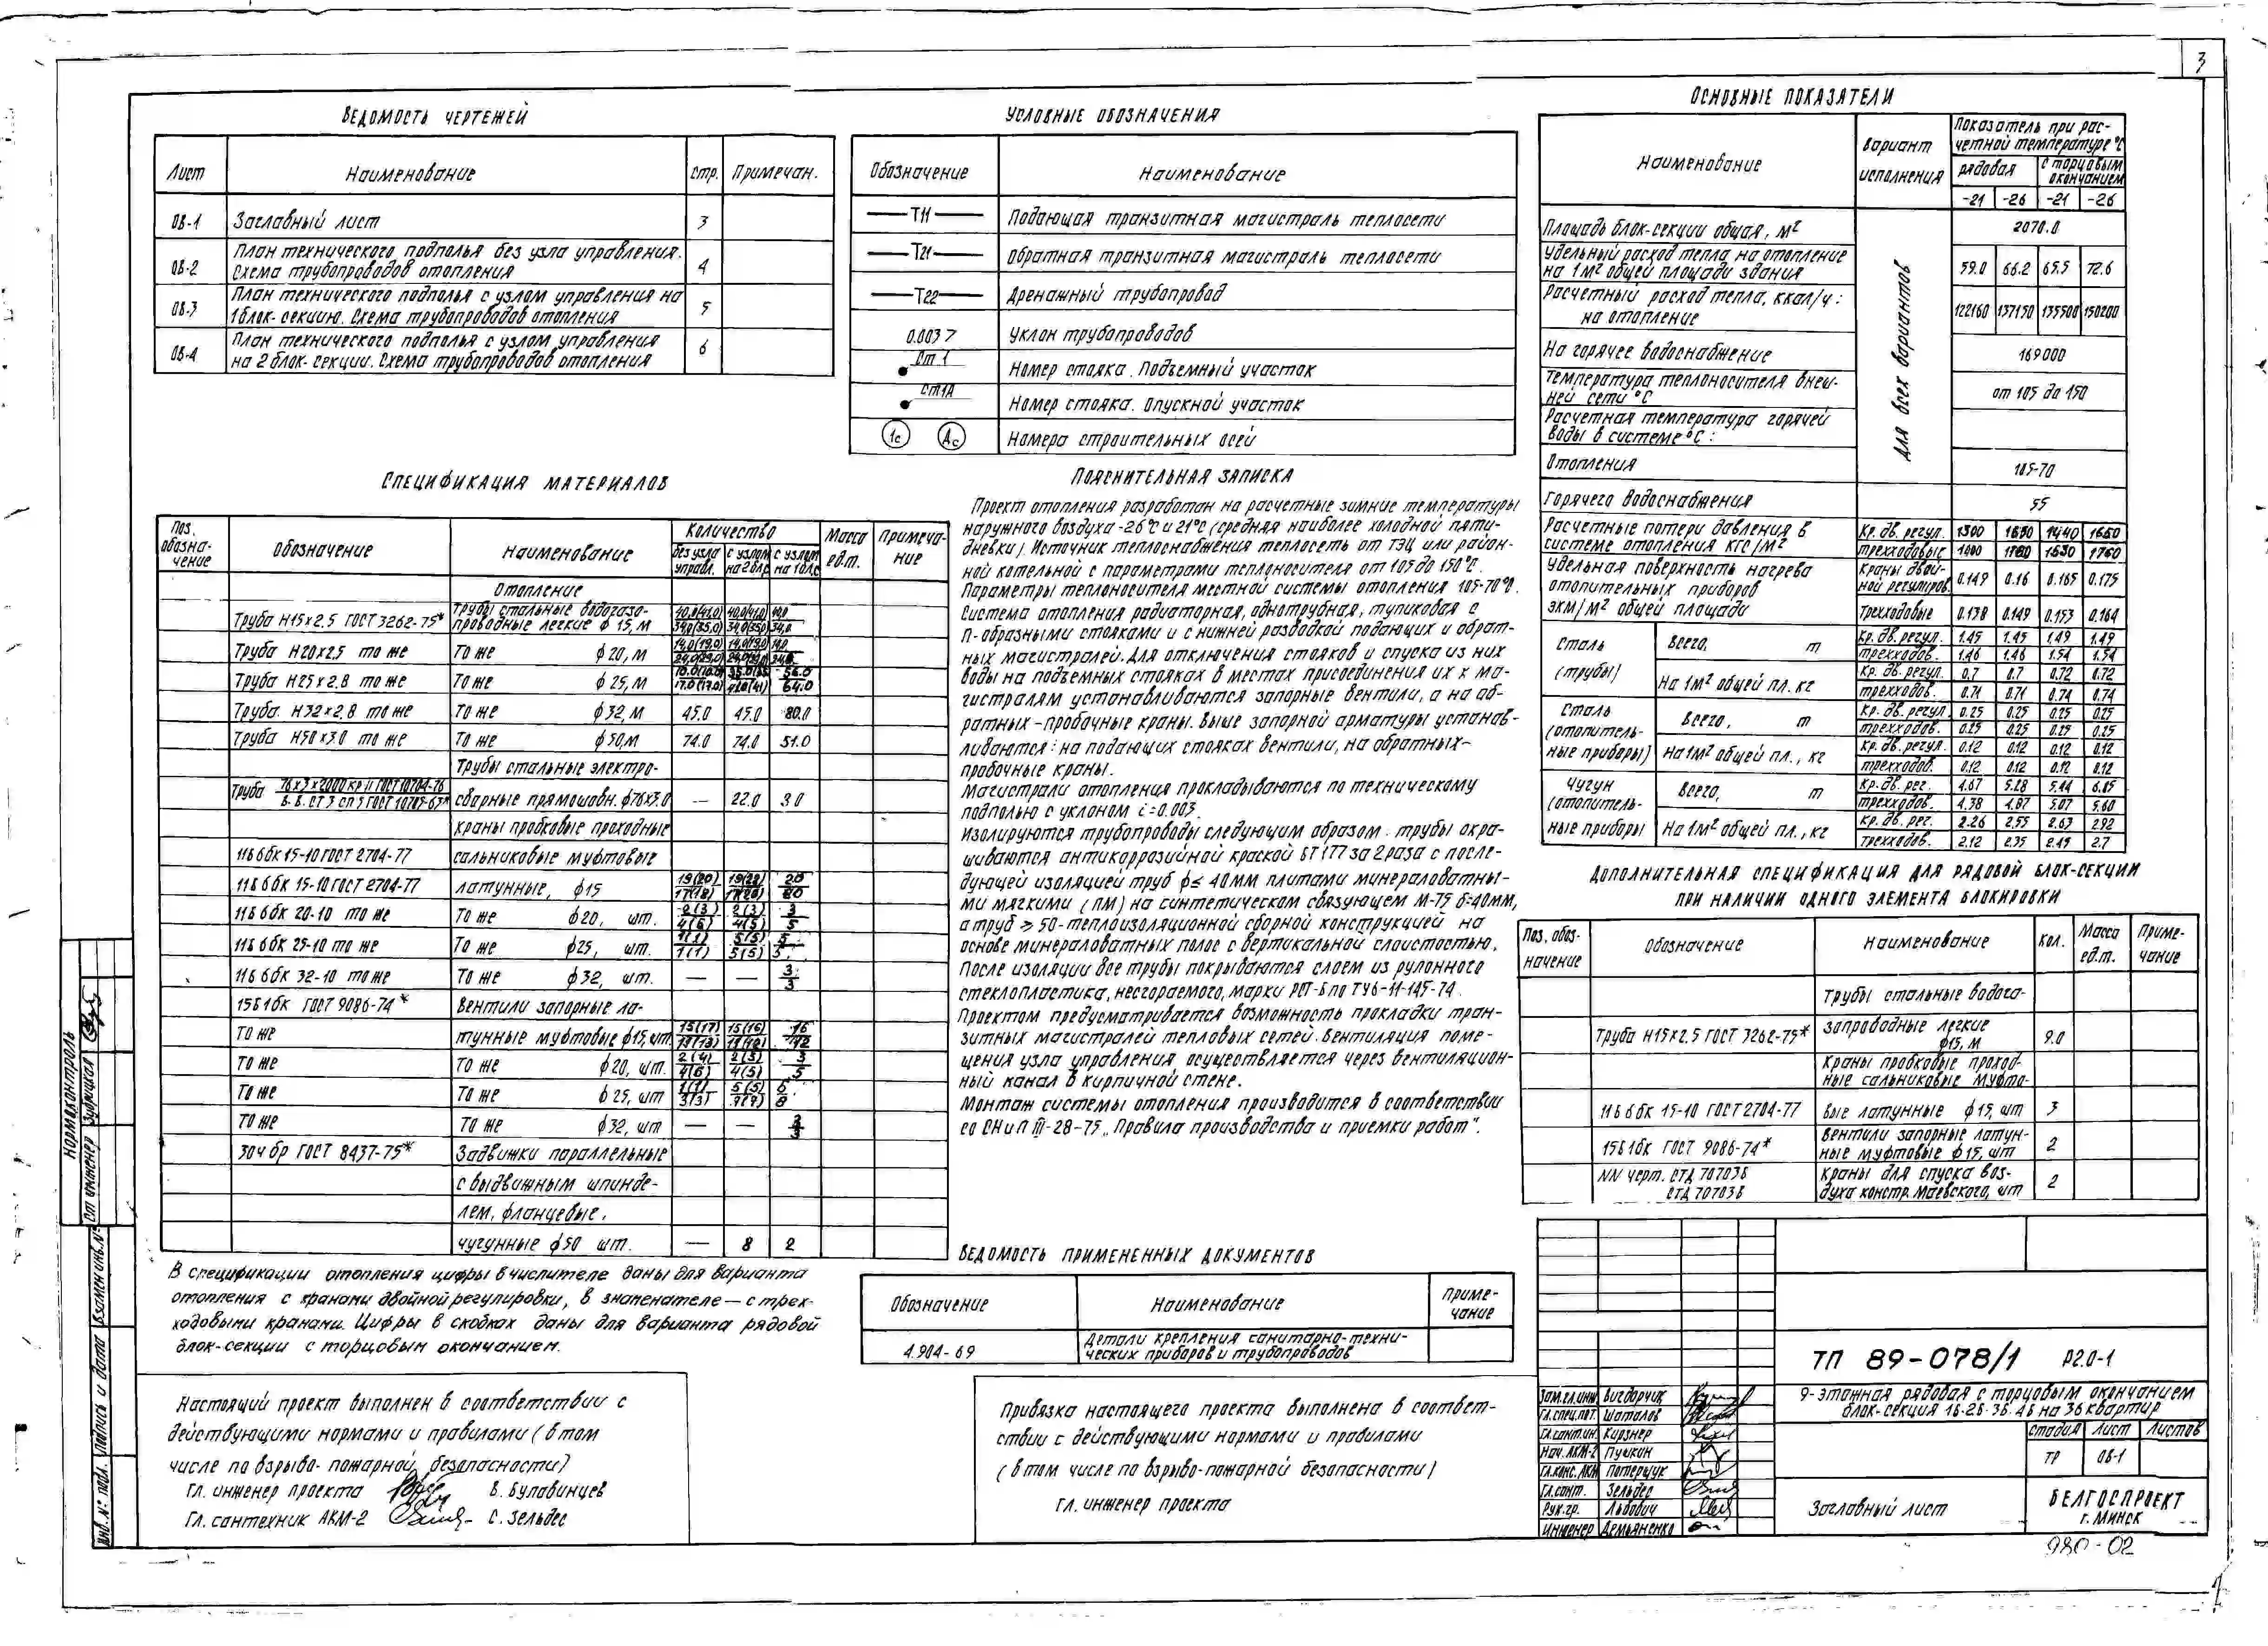 3
Ведомость чертежей
Лист Наименование Стр. Примечан.
ОВ-1 Заглавный лист 3
ОВ-2 План технического подполья без узла управления. Схема трубопроводов отопления 4
ОВ-3 План технического подполья с узлом управления на 1 блок-секцию. Схема трубопроводов отопления 5
ОВ-4 План технического подполья с узлом управления на 2 блок-секции. Схема трубопроводов отопления 6
Условные обозначения
Обозначение Наименование
Т11 Подающая транзитная магистраль теплосети
Т21 Обратная транзитная магистраль теплосети
Т22 Дренажный трубопровод
0.003 Уклон трубопроводов
Ст 1 Номер стояка. Подъемный участок
Ст1А Номер стояка. Опускной участок
1с Ас Номера строительных осей
Основные показатели
Наименование Вариант исполнения Показатель при расчетной температуре °С
рядовая с торцовым окончанием
-21 -26 -21 -26
для всех вариантов
Площадь блок-секции общая, м² 2070.0
Удельный расход тепла на отопление на 1 м² общей площади здания 59.0 66.2 65.5 72.6
Расчетный расход тепла, ккал/ч: на отопление 122160 137150 135500 150200
На горячее водоснабжение 169000
Температура теплоносителя внешней сети °С от 105 до 150
Расчетная температура горячей воды в системе °С:
Отопления 105-70
Горячего водоснабжения 55
Расчетные потери давления в системе отопления кгс/м² Кр. дв. регул. 1300 1650 1440 1660
трехходовые 1400 1760 1530 1760
Удельная поверхность нагрева отопительных приборов экм/м² общей площади Краны двойной регулиров. 0.149 0.16 0.165 0.175
Трехходовые 0.138 0.149 0.153 0.164
Сталь (трубы) Всего, т Кр. дв. регул. 1.45 1.45 1.49 1.49
трехходов. 1.46 1.46 1.54 1.54
На 1м² общей пл. кг Кр. дв. регул. 0.7 0.7 0.72 0.72
трехходов. 0.71 0.71 0.74 0.74
Сталь (отопительные приборы) Всего, т Кр. дв. регул. 0.25 0.25 0.25 0.25
трехходов. 0.25 0.25 0.25 0.25
На 1м² общей пл., кг Кр. дв. регул. 0.12 0.12 0.12 0.12
трехходов. 0.12 0.12 0.12 0.12
Чугун (отопительные приборы Всего, т Кр. дв. рег. 4.67 5.28 5.44 6.05
трехходов. 4.38 4.87 5.07 5.60
На 1м² общей пл., кг Кр. дв. рег. 2.26 2.55 2.63 2.92
трехходов. 2.12 2.35 2.45 2.7
Спецификация материалов
Поз. обозначение Обозначение Наименование Количество Масса ед.т. Примечание
без узла управл. с узлом на 2 б/с с узлом на 1 б/с
Отопление
Труба Н15х2,5 ГОСТ 3262-75* Трубы стальные водогазопроводные легкие ф 15, м 40.0(41.0) 40.0(41.0) 40.0
34.0(35.0) 34.0(35.0) 34.0
Труба Н20х2,5 то же То же ф20, м
Труба Н25х2.8 то же То же ф 25, м 56.0
17.0(17.0) 41.0(41) 64.0
Труба Н32х2.8 то же То же ф32, м 45.0 45.0 80.0
Труба Н50х3.0 то же То же ф50, м 74.0 74.0 51.0
Трубы стальные электро-
Труба 76х3х2000 кр II ГОСТ 10704-76 сварные прямошовн. ф76х3.0 — 22.0 3.0
краны пробковые проходные
11Б 6бк 15-10 ГОСТ 2704-77 сальниковые муфтовые
11Б 6бк 15-10 ГОСТ 2704-77 латунные, ф15 19(20) 19(22) 20
17(18) 17(20) 20
11Б 6бк 20-10 то же То же ф20, шт. 2(3) 2(3) 3
4(5) 4(5) 5
11Б 6бк 25-10 то же То же ф25, шт. 1(1) 5(5) 5
1(1) 5(5) 5
11Б 6бк 32-10 то же То же ф32, шт. — — 3
3
15Б1бк ГОСТ 9086-74* Вентили запорные ла-
То же тунные муфтовые ф15, шт 15(17) 15(16) 16
12
То же То же ф20, шт. 2(4) 2(3) 3
4(6) 4(5) 5
То же То же ф25, шт 1(1) 5(5) 6
3(3) 7(7) 8
То же То же ф32, шт — — 3
3
30ч бр ГОСТ 8437-75* Задвижки параллельные
с выдвижным шпинде-
лем, фланцевые,
чугунные ф50 шт. — 8 2
В спецификации отопления цифры в числителе даны для варианта
отопления с кранами двойной регулировки, в знаменателе — с трех-
ходовыми кранами. Цифры в скобках даны для варианта рядовой
блок-секции с торцовым окончанием.
Пояснительная записка
Проект отопления разработан на расчетные зимние температуры
наружного воздуха -26°С и 21°С (средняя наиболее холодной пяти-
дневки). Источник теплоснабжения теплосеть от ТЭЦ или район-
ной котельной с параметрами теплоносителя от 105 до 150°С.
Параметры теплоносителя местной системы отопления 105-70°С.
Система отопления радиаторная, однотрубная, тупиковая с
П-образными стояками и с нижней разводкой подающих и обрат-
ных магистралей. Для отключения стояков и спуска из них
воды на подъемных стояках в местах присоединения их к ма-
гистралям устанавливаются запорные вентили, а на об-
ратных - пробочные краны. Выше запорной арматуры устанав-
ливаются: на подающих стояках вентили, на обратных -
пробочные краны.
Магистрали отопления прокладываются по техническому
подполью с уклоном i=0.003.
Изолируются трубопроводы следующим образом. трубы окра-
шиваются антикоррозийной краской БТ 177 за 2 раза с после-
дующей изоляцией труб ф≤ 40мм плитами минераловатны-
ми мягкими (ПМ) на синтетическом связующем М-75 δ=40мм,
а труб ≥ 50-теплоизоляционной сборной конструкцией на
основе минераловатных полос с вертикальной слоистостью.
После изоляции все трубы покрываются слоем из рулонного
стеклопластика, несгораемого, марки РСТ-Б по ТУ6-11-145-74.
Проектом предусматривается возможность прокладки тран-
зитных магистралей тепловых сетей. Вентиляция поме-
щения узла управления осуществляется через вентиляцион-
ный канал в кирпичной стене.
Монтаж системы отопления производится в соответствии
со СНиП III-28-75 „Правила производства и приемки работ".
Дополнительная спецификация для рядовой блок-секции
при наличии одного элемента блокировки
Поз. обозначение Обозначение Наименование Кол. Масса ед.т. Примечание
Трубы стальные водога-
Труба Н15х2.5 ГОСТ 3262-75* запроводные легкие ф15, м 9.0
Краны пробковые проход-
ные сальниковые муфто-
11Б 6бк 15-10 ГОСТ 2704-77 вые латунные ф15, шт 3
15Б1бк ГОСТ 9086-74* Вентили запорные латунные муфтовые ф15, шт 2
NN черт. СТД 7073Б СТД 7073Б Краны для спуска воздуха констр. Маевского, шт 2
Ведомость примененных документов
Обозначение Наименование Примечание
4.904-69 Детали крепления санитарно-технических приборов и трубопроводов
Настоящий проект выполнен в соответствии с
действующими нормами и правилами (в том
числе по взрыво-пожарной безопасности)
Гл. инженер проекта В. Булавинцев
Гл. сантехник АКМ-2 С. Зельдес
Привязка настоящего проекта выполнена в соответ-
ствии с действующими нормами и правилами
(в том числе по взрыво-пожарной безопасности)
гл. инженер проекта
Зам.гл.инж Вигдорчик
Гл.спец.пот. Шаталов
Гл.сант.ин. Кирзнер
Нач. АКМ-2 Пушкин
Гл.конс.АКМ Потерщук
Гл.сант. Зельдес
Рук.гр. Львович
Инженер Демьяненко
ТП 89-078/1 Р2.0-1
9-этажная рядовая с торцовым окончанием
блок-секция 1Б-2Б-3Б-4Б на 36 квартир
Стадия Лист Листов
ТР ОВ-1
Заглавный лист
БЕЛГОСПРОЕКТ
г. Минск
980-02
Нормоконтроль
Ст инженер Зубрицкая
Взамен инв.№
Подпись и дата
Инв.№ подл.